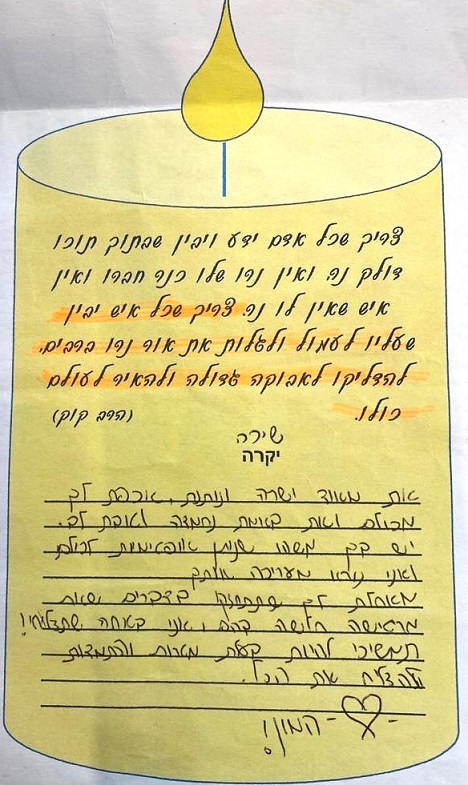 צריך שכל אדם ידע ויבין שבתוך תוכו
דולק נר. ואין נרו שלו כנר חברו ואין
איש שאין לו נר. צריך שכל איש יבין
שעליו לעמול ולגלות את אור נרו ברבים,
להדליקו לאבוקה גדולה ולהאיר לעולם
כולו. (הרב קוק)
שירה
יקרה
את מאוד ישרה ונותנת, אכפת לך
מכולם ואת באמת נחמדה וטובת לב.
יש בך משהו שנותן אופטימיות לכולם
ואני נורא מעריכה אותך
מאחלת לך שתתחזקי בדברים שאת
מרגישה חלישה בהם, אני בטוחה שתצליחי!
תמשיכי להיות בעלת מטרות והתמדות
ולהצליח את הכל.
המון!